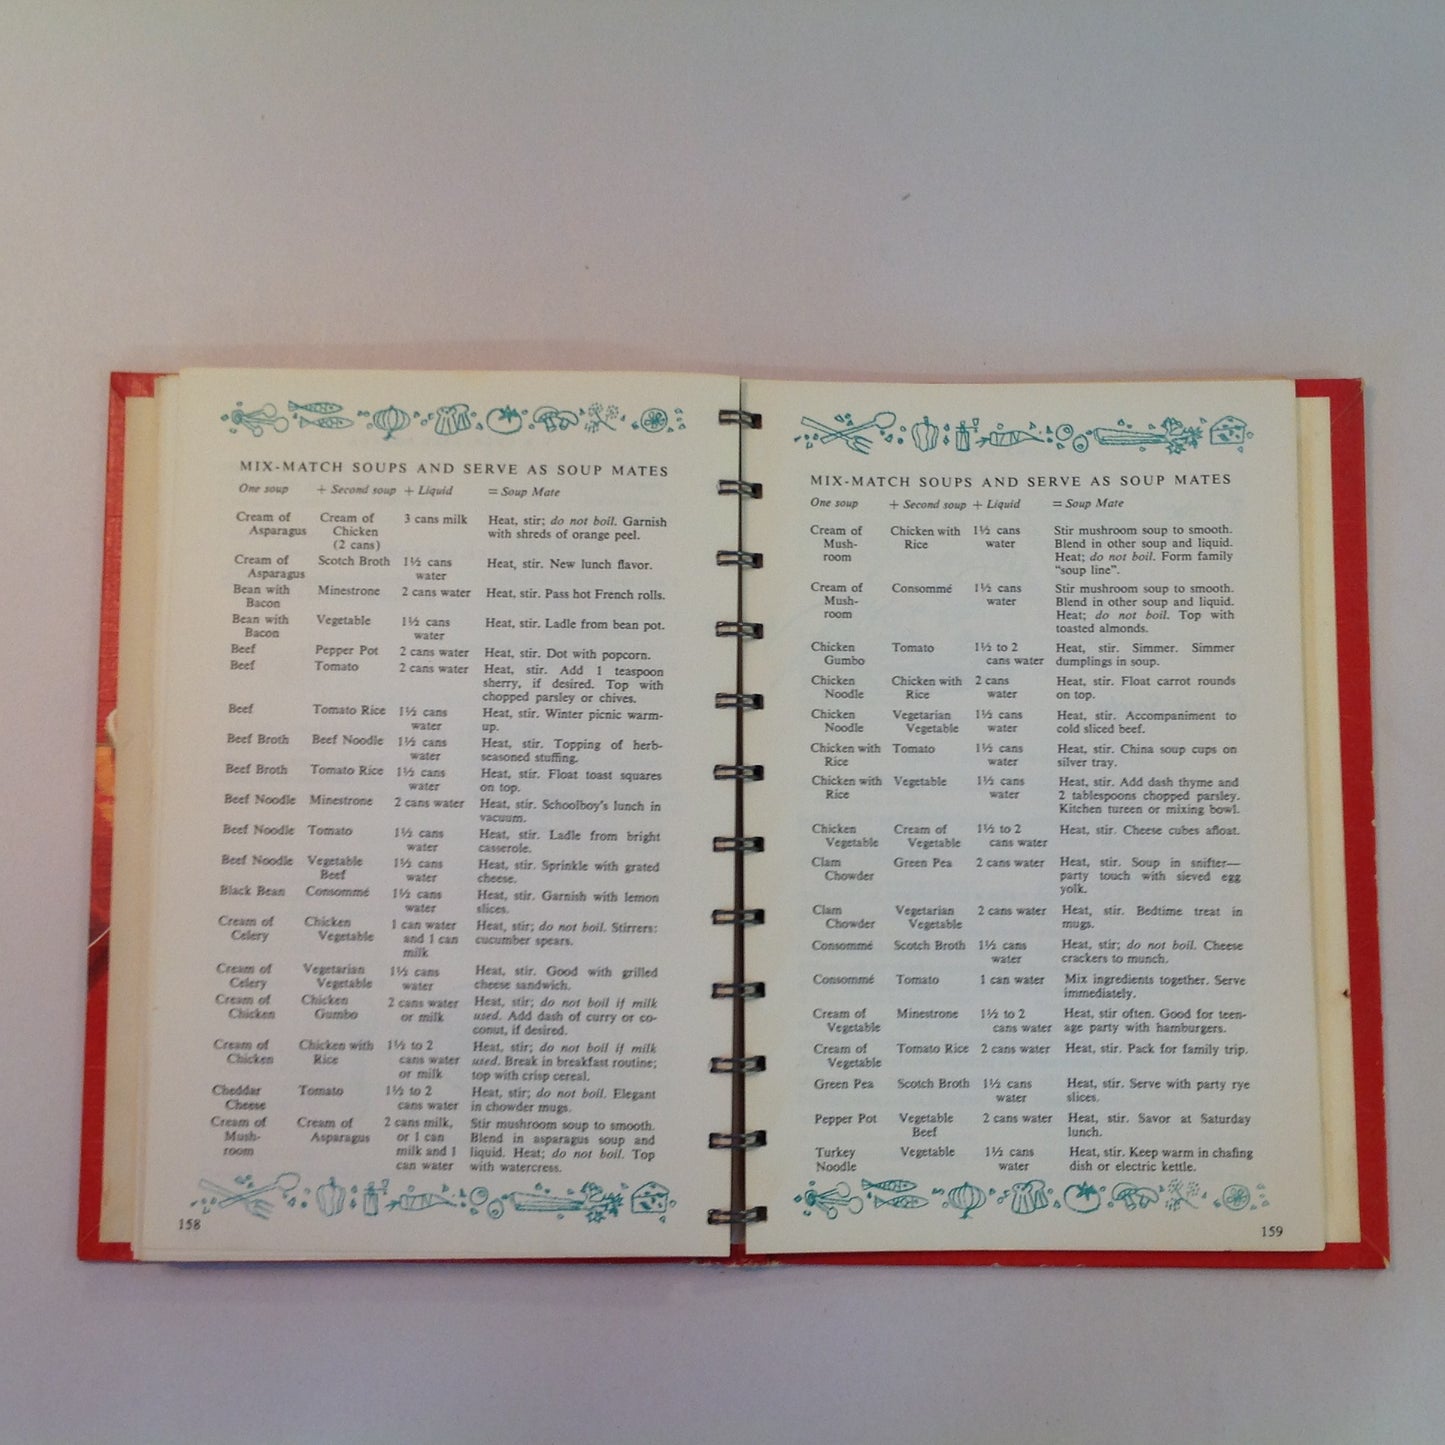 MIX-MATCH SOUPS AND SERVE AS SOUP MATES
One soup + Second soup + Liquid = Soup Mate
Cream of Cream of 3 cans milk Heat, stir; do not boil. Garnish
Asparagus Chicken with shreds of orange peel.
(2 cans)
Cream of Scotch Broth 1½ cans Heat, stir. New lunch flavor.
Asparagus water
Bean with Minestrone 2 cans water Heat, stir. Pass hot French rolls.
Bacon
Bean with Vegetable 1½ cans Heat, stir. Ladle from bean pot.
Bacon water
Beef Pepper Pot 2 cans water Heat, stir. Dot with popcorn.
Beef Tomato 2 cans water Heat, stir. Add 1 teaspoon
sherry, if desired. Top with
chopped parsley or chives.
Beef Tomato Rice 1½ cans Heat, stir. Winter picnic warm-
water up.
Beef Broth Beef Noodle 1½ cans Heat, stir. Topping of herb-
water seasoned stuffing.
Beef Broth Tomato Rice 1½ cans Heat, stir. Float toast squares
water on top.
Beef Noodle Minestrone 2 cans water Heat, stir. Schoolboy's lunch in
vacuum.
Beef Noodle Tomato 1½ cans Heat, stir. Ladle from bright
water casserole.
Beef Noodle Vegetable 1½ cans Heat, stir. Sprinkle with grated
Beef water cheese.
Black Bean Consommé 1½ cans Heat, stir. Garnish with lemon
water slices.
Cream of Chicken 1 can water Heat, stir; do not boil. Stirrers:
Celery Vegetable and 1 can cucumber spears.
milk
Cream of Vegetarian 1½ cans Heat, stir. Good with grilled
Celery Vegetable water cheese sandwich.
Cream of Chicken 2 cans water Heat, stir; do not boil if milk
Chicken Gumbo or milk used. Add dash of curry or co-
conut, if desired.
Cream of Chicken with 1½ to 2 Heat, stir; do not boil if milk
Chicken Rice cans water used. Break in breakfast routine;
or milk top with crisp cereal.
Cheddar Tomato 1½ to 2 Heat, stir; do not boil. Elegant
Cheese cans water in chowder mugs.
Cream of Cream of 2 cans milk, Stir mushroom soup to smooth.
Mush- Asparagus or 1 can Blend in asparagus soup and
room milk and 1 liquid. Heat; do not boil. Top
can water with watercress.
158
MIX-MATCH SOUPS AND SERVE AS SOUP MATES
One soup + Second soup + Liquid = Soup Mate
Cream of Chicken with 1½ cans Stir mushroom soup to smooth.
Mush- Rice water Blend in other soup and liquid.
room Heat; do not boil. Form family
"soup line".
Cream of Consommé 1½ cans Stir mushroom soup to smooth.
Mush- water Blend in other soup and liquid.
room Heat; do not boil. Top with
toasted almonds.
Chicken Tomato 1½ to 2 Heat, stir. Simmer. Simmer
Gumbo cans water dumplings in soup.
Chicken Chicken with 2 cans Heat, stir. Float carrot rounds
Noodle Rice water on top.
Chicken Vegetarian 1½ cans Heat, stir. Accompaniment to
Noodle Vegetable water cold sliced beef.
Chicken with Tomato 1½ cans Heat, stir. China soup cups on
Rice water silver tray.
Chicken with Vegetable 1½ cans Heat, stir. Add dash thyme and
Rice water 2 tablespoons chopped parsley.
Kitchen tureen or mixing bowl.
Chicken Cream of 1½ to 2 Heat, stir. Cheese cubes afloat.
Vegetable Vegetable cans water
Clam Green Pea 2 cans water Heat, stir. Soup in snifter—
Chowder party touch with sieved egg
yolk.
Clam Vegetarian 2 cans water Heat, stir. Bedtime treat in
Chowder Vegetable mugs.
Consommé Scotch Broth 1½ cans Heat, stir; do not boil. Cheese
water crackers to munch.
Consommé Tomato 1 can water Mix ingredients together. Serve
immediately.
Cream of Minestrone 1½ to 2 Heat, stir often. Good for teen-
Vegetable cans water age party with hamburgers.
Cream of Tomato Rice 2 cans water Heat, stir. Pack for family trip.
Vegetable
Green Pea Scotch Broth 1½ cans Heat, stir. Serve with party rye
water slices.
Pepper Pot Vegetable 2 cans water Heat, stir. Savor at Saturday
Beef lunch.
Turkey Vegetable 1½ cans Heat, stir. Keep warm in chafing
Noodle water dish or electric kettle.
159